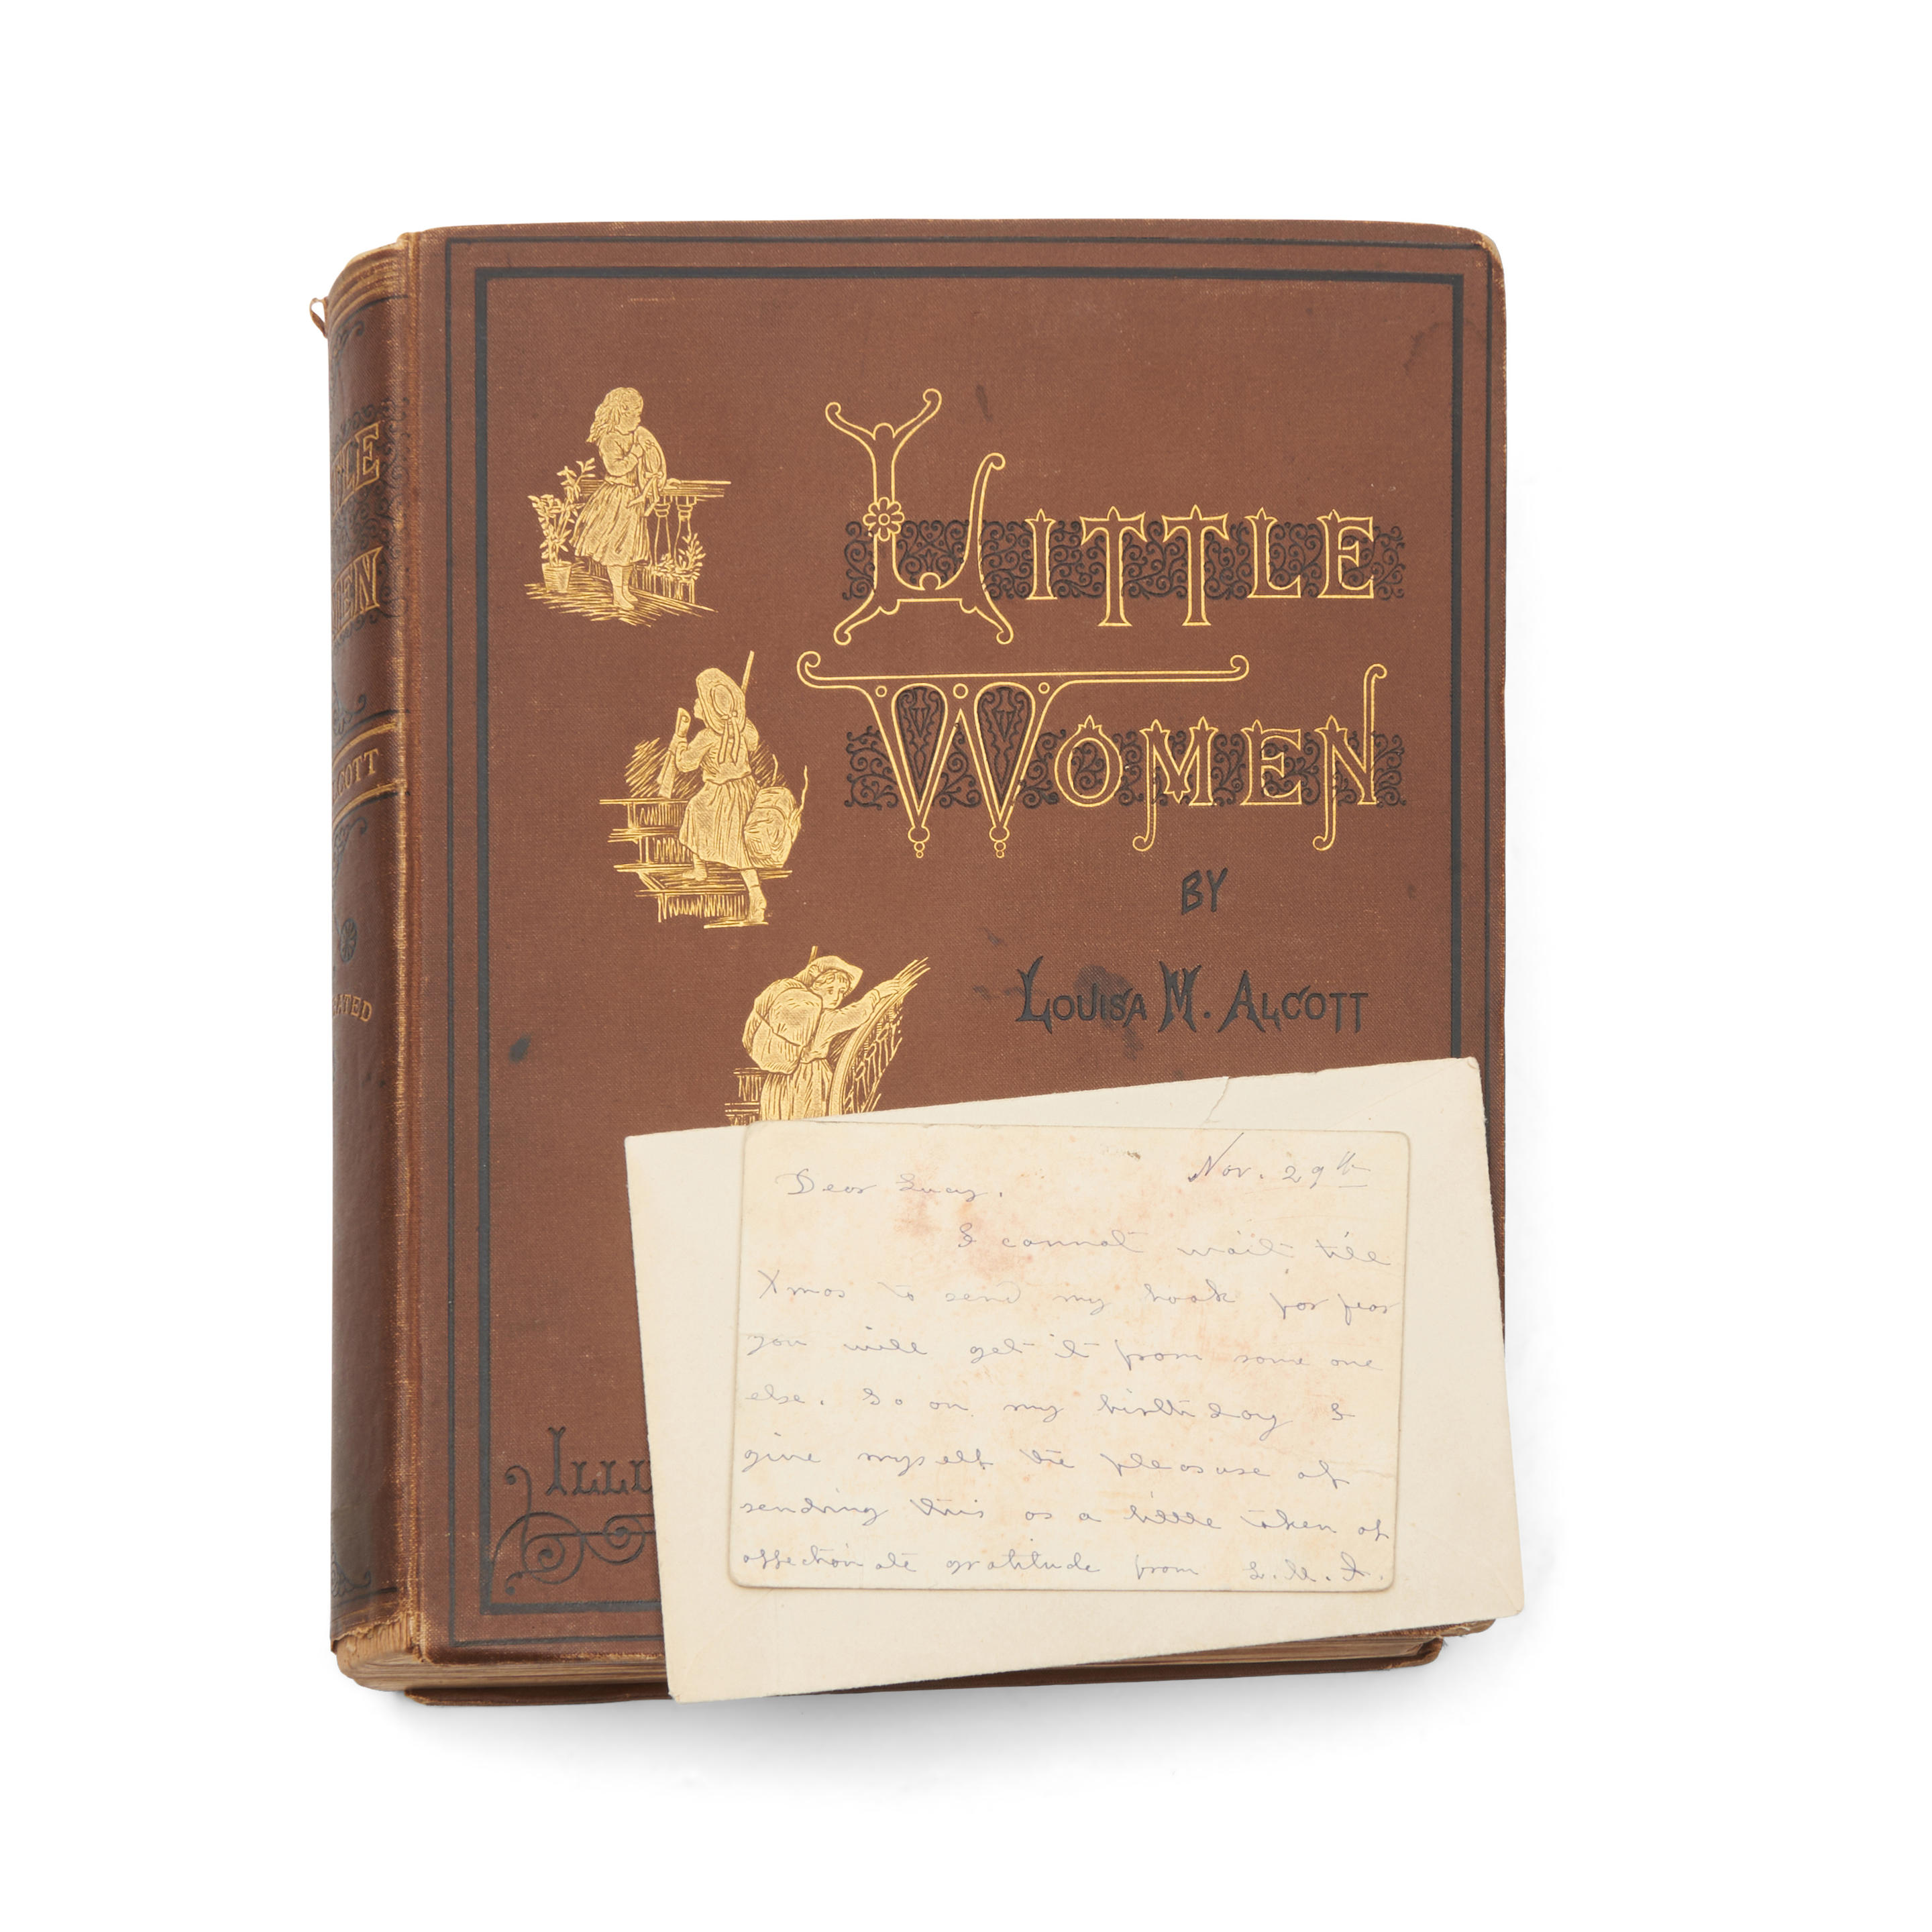 LITTLE
WOMEN
BY
LOUISA M. ALCOTT
ILLU
TLE
MEN
LCOTT
RATED
Nov. 29th
Dear Lucy.
I cannot wait till
Xmas to send my book for fear
you will get it from some one
else. So on my birthday I
give myself the pleasure of
sending this as a little token of
affectionate gratitude from L.M.A.